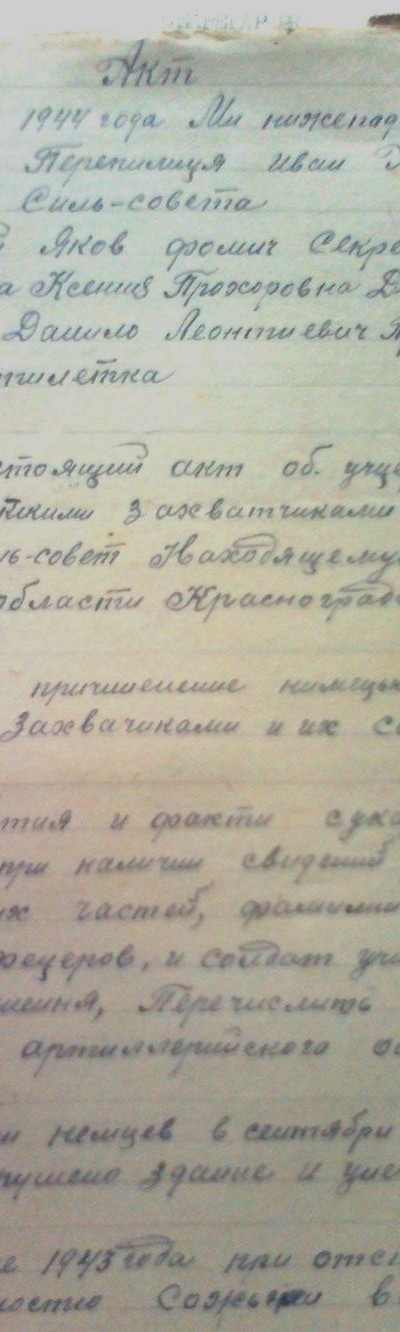 Акт
1944 года Ми нижепод
Перепилиця Иван
Силь-совета
й Яков фомич Секре
а Ксения Прохоровна Д
Данило Леонтиевич
тилетка
стоящий акт об. ущер
скими захватчиками
ль-совет Находящему
области Красноград
причинение нимецк
Захвачиками и их с
тия и факти сука
при наличии свидений
их частей, фамилии
фецеров, и солдат уч
шения, Перечислить
артиллерийского о
и немцев в сентябри
рушено здание и уне
е 1943 года при отст
ностю Сожьжен в